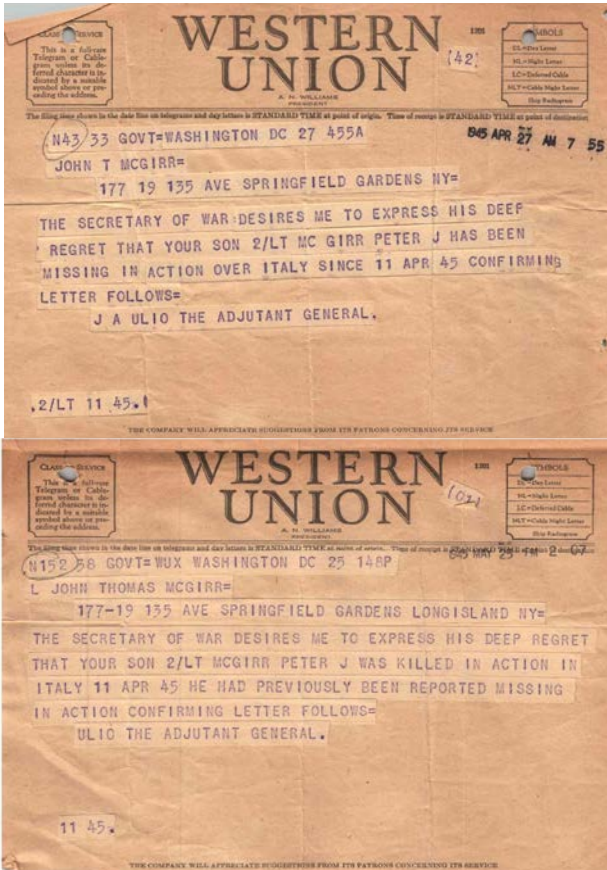 CLASS OF SERVICE
This is a full-rate
Telegram or Cable-
gram unless its de-
ferred character is in-
dicated by a suitable
symbol above or pre-
ceding the address.
WESTERN
UNION
A. N. WILLIAMS
PRESIDENT
1201
(42)
SYMBOLS
DL=Day Letter
NL=Night Letter
LC=Deferred Cable
NLT=Cable Night Letter
Ship Radiogram
The filing time shown in the date line on telegrams and day letters is STANDARD TIME at point of origin. Time of receipt is STANDARD TIME at point of destination
N43 33 GOVT=WASHINGTON DC 27 455A
1945 APR 27 AM 7 55
JOHN T MCGIRR=
177 19 135 AVE SPRINGFIELD GARDENS NY=
THE SECRETARY OF WAR DESIRES ME TO EXPRESS HIS DEEP
REGRET THAT YOUR SON 2/LT MC GIRR PETER J HAS BEEN
MISSING IN ACTION OVER ITALY SINCE 11 APR 45 CONFIRMING
LETTER FOLLOWS=
J A ULIO THE ADJUTANT GENERAL.
2/LT 11 45.
THE COMPANY WILL APPRECIATE SUGGESTIONS FROM ITS PATRONS CONCERNING ITS SERVICE
CLASS OF SERVICE
This is a full-rate
Telegram or Cable-
gram unless its de-
ferred character is in-
dicated by a suitable
symbol above or pre-
ceding the address.
WESTERN
UNION
A. N. WILLIAMS
PRESIDENT
1201
SYMBOLS
DL=Day Letter
NL=Night Letter
LC=Deferred Cable
NLT=Cable Night Letter
Ship Radiogram
The filing time shown in the date line on telegrams and day letters is STANDARD TIME at point of origin. Time of receipt is STANDARD TIME at point of destination
N152 58 GOVT=WUX WASHINGTON DC 25 148P
1945 MAY 25 PM 2 07
L JOHN THOMAS MCGIRR=
177-19 135 AVE SPRINGFIELD GARDENS LONGISLAND NY=
THE SECRETARY OF WAR DESIRES ME TO EXPRESS HIS DEEP REGRET
THAT YOUR SON 2/LT MCGIRR PETER J WAS KILLED IN ACTION IN
ITALY 11 APR 45 HE HAD PREVIOUSLY BEEN REPORTED MISSING
IN ACTION CONFIRMING LETTER FOLLOWS=
ULIO THE ADJUTANT GENERAL.
11 45.
THE COMPANY WILL APPRECIATE SUGGESTIONS FROM ITS PATRONS CONCERNING ITS SERVICE